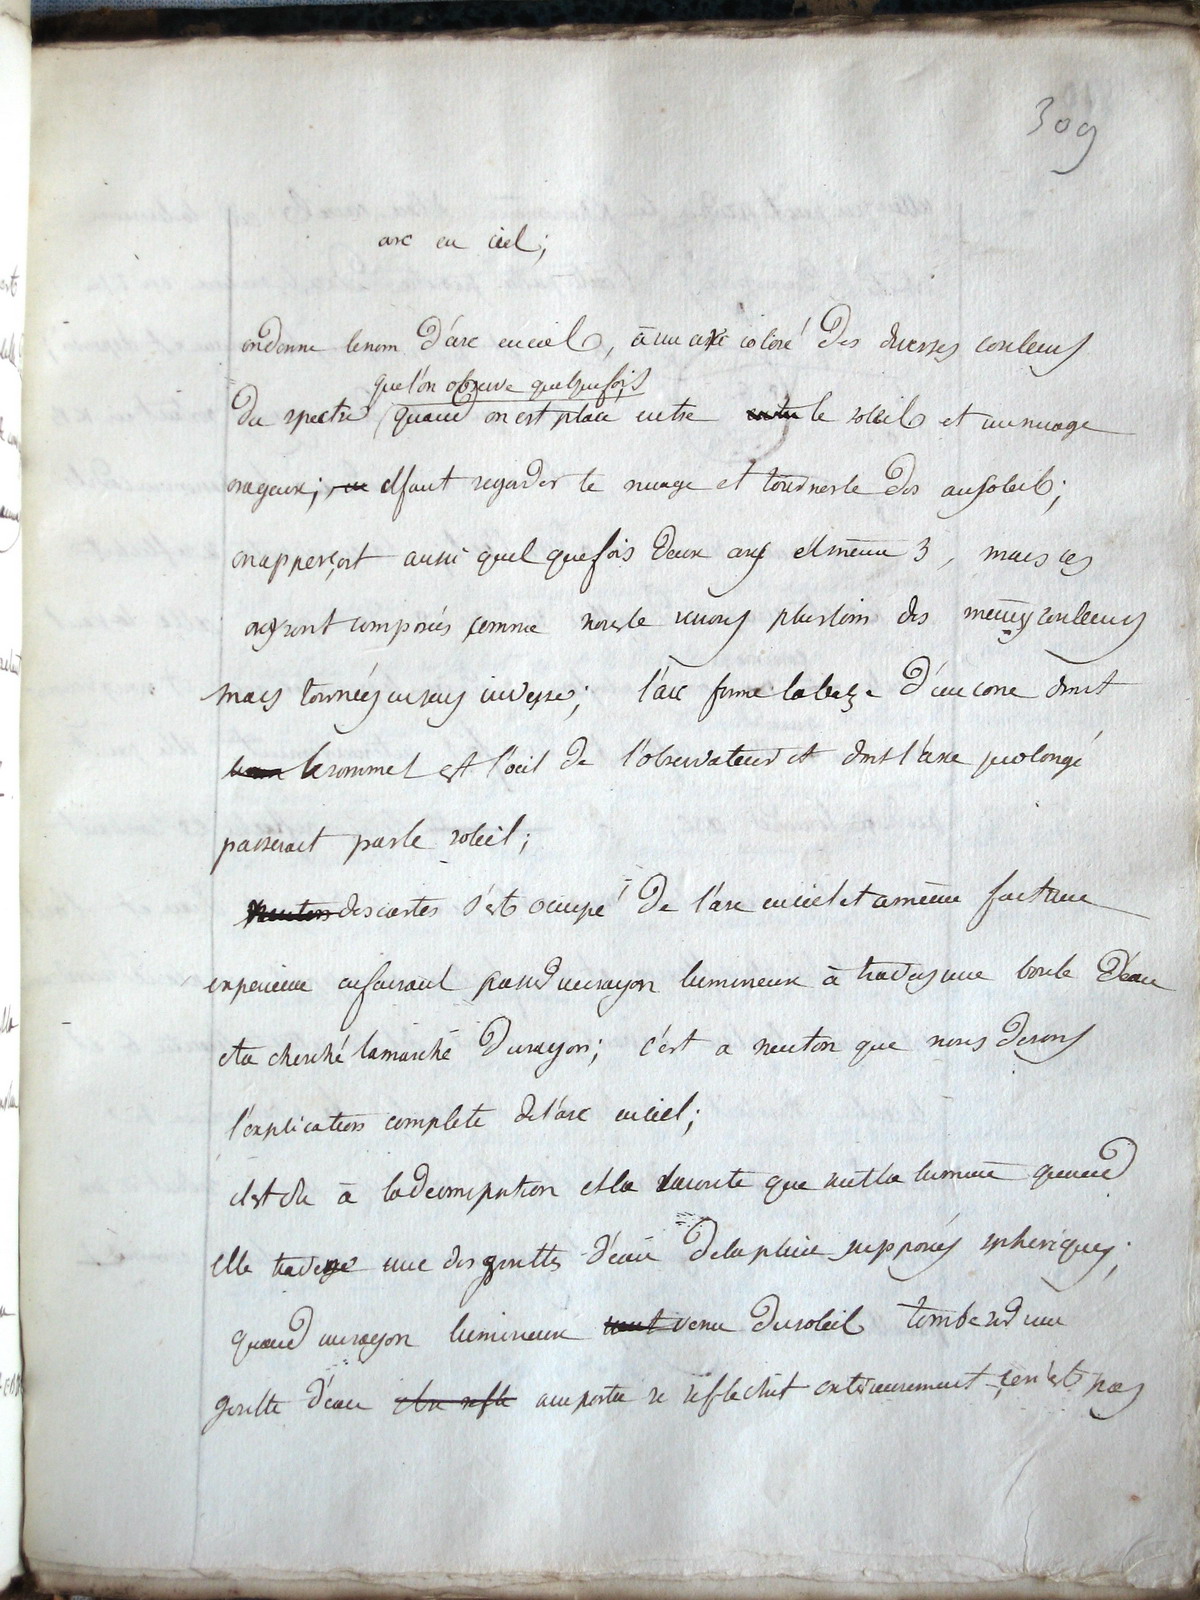 309
arc en ciel;
on donne le nom d'arc en ciel, à un arc coloré des diverses couleurs
que l'on observe quelquefois
du spectre quand on est placé entre entre le soleil et un nuage
orageux; il faut regarder le nuage et tourner le dos au soleil;
on apperçoit aussi quelquefois deux arcs et même 3, mais ces
arcs sont composés comme nous le verrons plus loin des memes couleurs
mais tournées en sens inverse; l'arc forme la base d'un cone dont
le sommet est l'oeil de l'observateur et dont l'axe prolongé
passerait par le soleil;
neuton descartes s'est occupé de l'arc en ciel et a même fait une
experience en faisant passer un rayon lumineux à travers une boule d'eau
et a cherché la marche du rayon; c'est a neuton que nous devons
l'explication complete de l'arc en ciel;
il est du à la decomposition et la route que suit la lumiere quand
elle traverse une des gouttes d'eau de la pluie supposées spheriques;
quand un rayon lumineux venu du soleil tombe sur une
goutte d'eau une partie se reflechit exterieurement, ce n'est pas